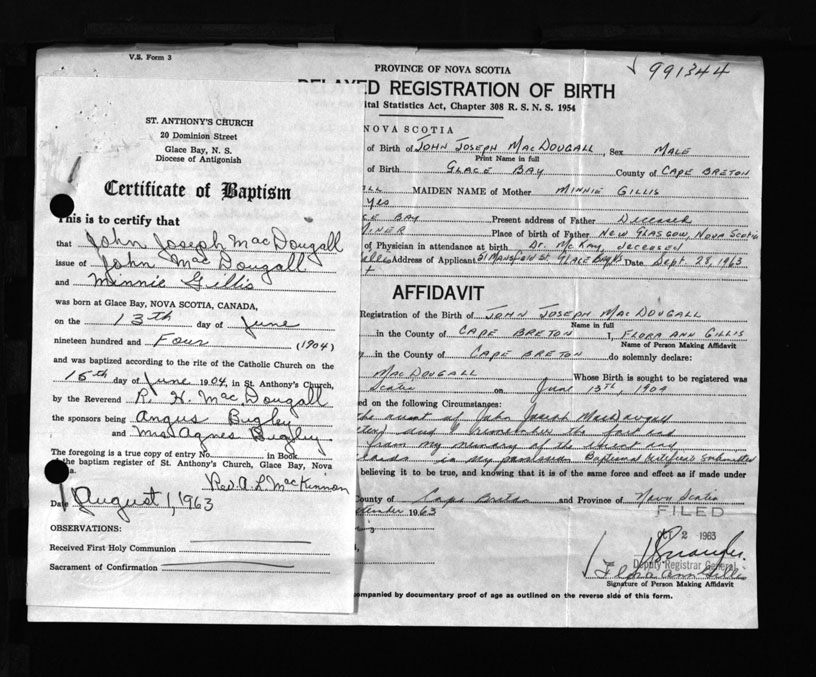 V.S. Form 3
ST. ANTHONY'S CHURCH
20 Dominion Street
Glace Bay, N. S.
Diocese of Antigonish
Certificate of Baptism
This is to certify that
that John Joseph MacDougall
issue of John MacDougall
and Minnie Gillis
was born at Glace Bay, NOVA SCOTIA, CANADA,
on the 13th day of June
nineteen hundred and Four (1904)
and was baptized according to the rite of the Catholic Church on the
15th day of June 1904, in St. Anthony's Church,
by the Reverend R. H. MacDougall
the sponsors being Angus Bigley
and Mrs Agnes Bigley
The foregoing is a true copy of entry No. in Book
the baptism register of St. Anthony's Church, Glace Bay, Nova
a.
Rev. A. L. MacKinnon
Date August 1, 1963
OBSERVATIONS:
Received First Holy Communion
Sacrament of Confirmation
PROVINCE OF NOVA SCOTIA
991344
DELAYED REGISTRATION OF BIRTH
ital Statistics Act, Chapter 308 R. S. N. S. 1954
NOVA SCOTIA
of Birth of JOHN JOSEPH MACDOUGALL, Sex MALE
Print Name in full
of Birth GLACE BAY County of CAPE BRETON
ALL MAIDEN NAME of Mother MINNIE GILLIS
Yes
CE BAY Present address of Father Deceased
MINER Place of birth of Father NEW GLASGOW, NOVA SCOTIA
of Physician in attendance at birth Dr. McKay, deceased
Address of Applicant 51 MANSFIELD ST. GLACE BAY Date Sept. 28, 1963
AFFIDAVIT
Registration of the Birth of JOHN JOSEPH MACDOUGALL
Name in full
in the County of CAPE BRETON I, FLORA ANN GILLIS
Name of Person Making Affidavit
y in the County of CAPE BRETON do solemnly declare:
MACDOUGALL Whose Birth is sought to be registered was
Scotia on June 13TH, 1904
ed on the following Circumstances:
the aunt of John Joseph MacDougall
and I remember the
from my memory of the
is in my possession Baptismal Certificate Submitted
believing it to be true, and knowing that it is of the same force and effect as if made under
ounty of Cape Breton and Province of Nova Scotia
tember 1963
FILED
OCT 2 1963
Deputy Registrar General
Flora Ann Gillis
Signature of Person Making Affidavit
ompanied by documentary proof of age as outlined on the reverse side of this form.